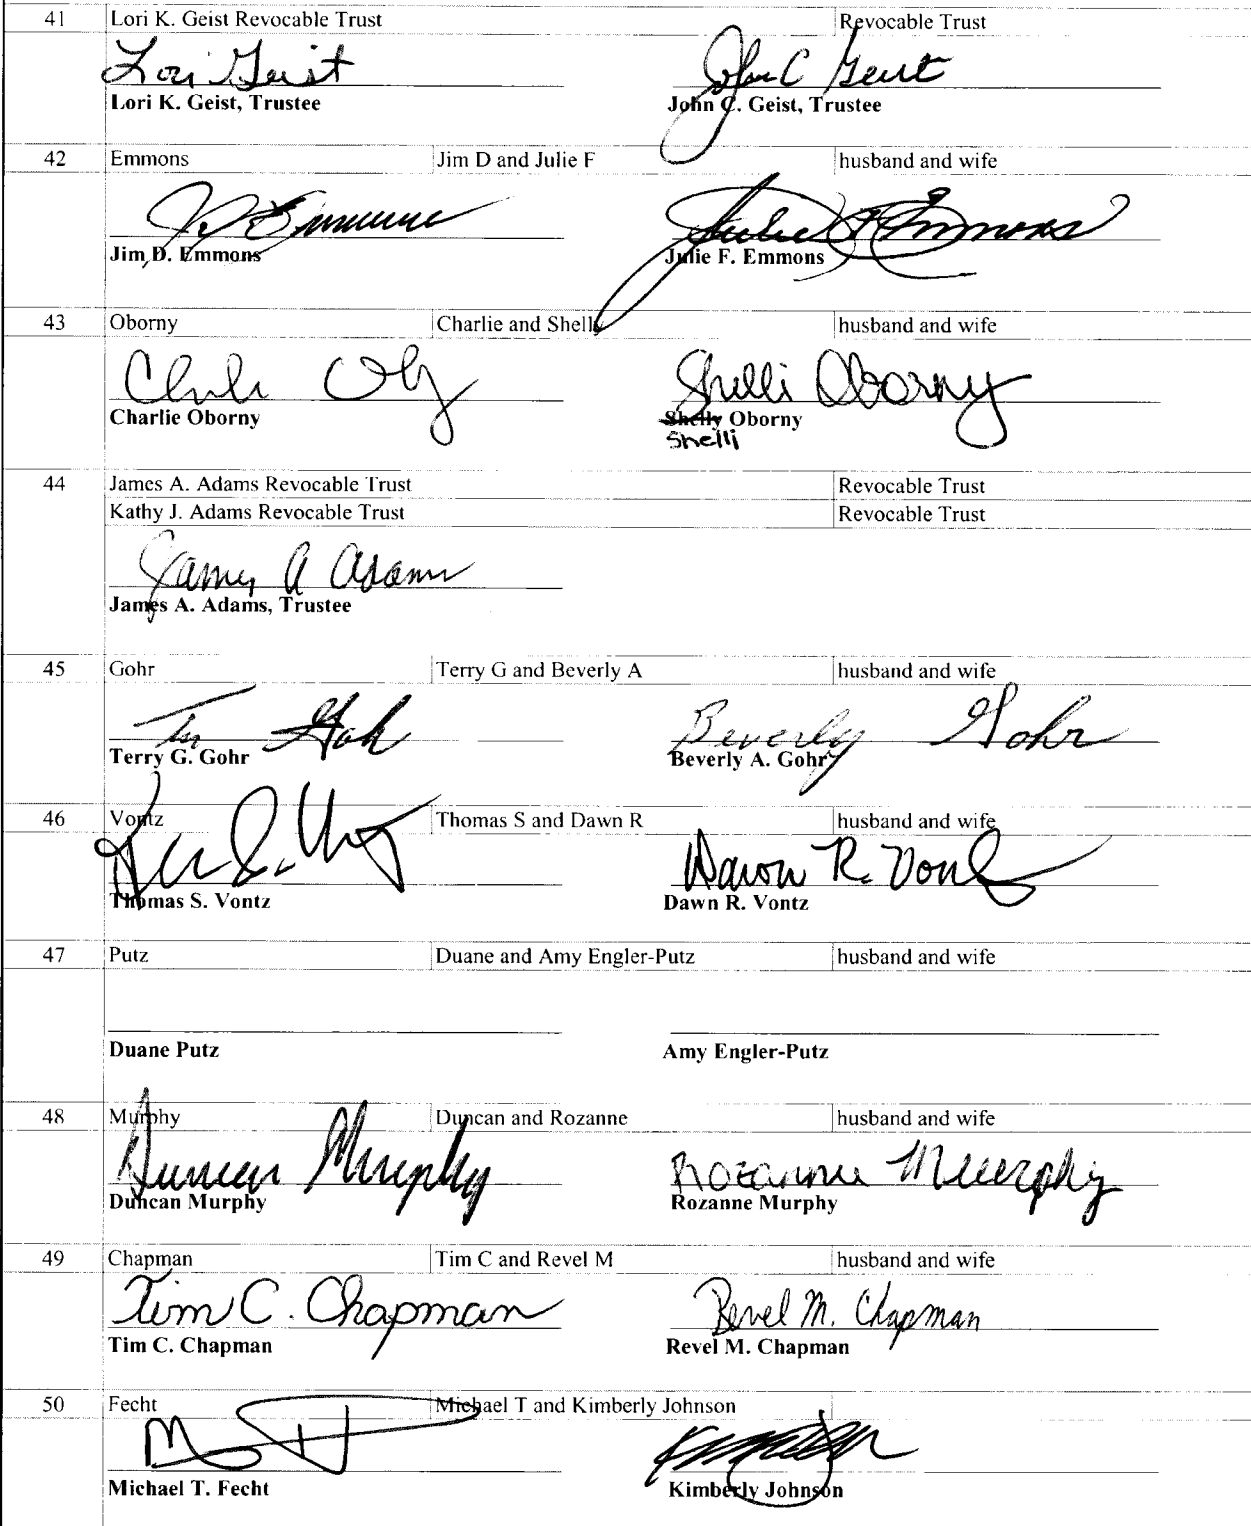 41 Lori K. Geist Revocable Trust Revocable Trust
Lori Geist John C Geist
Lori K. Geist, Trustee John C. Geist, Trustee
42 Emmons Jim D and Julie F husband and wife
J D Emmons Julie F Emmons
Jim D. Emmons Julie F. Emmons
43 Oborny Charlie and Shelly husband and wife
Shelli Oborny
Charlie Oborny Shelly Oborny
Shelli
44 James A. Adams Revocable Trust Revocable Trust
Kathy J. Adams Revocable Trust Revocable Trust
James A Adams
James A. Adams, Trustee
45 Gohr Terry G and Beverly A husband and wife
Gohr Beverly Gohr
Terry G. Gohr Beverly A. Gohr
46 Vontz Thomas S and Dawn R husband and wife
Dawn R. Vontz
Thomas S. Vontz Dawn R. Vontz
47 Putz Duane and Amy Engler-Putz husband and wife
Duane Putz Amy Engler-Putz
48 Murphy Duncan and Rozanne husband and wife
Duncan Murphy Rozanne Murphy
Duncan Murphy Rozanne Murphy
49 Chapman Tim C and Revel M husband and wife
Tim C. Chapman Revel M. Chapman
Tim C. Chapman Revel M. Chapman
50 Fecht Michael T and Kimberly Johnson
Michael T. Fecht Kimberly Johnson